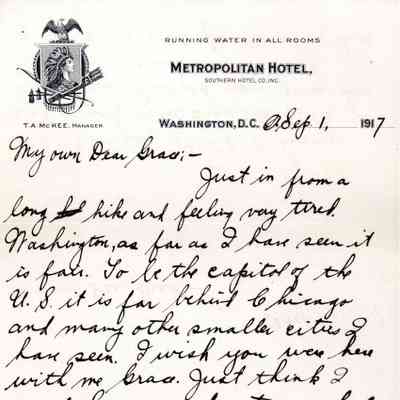 RUNNING WATER IN ALL ROOMS
METROPOLITAN HOTEL,
SOUTHERN HOTEL CO. INC.
T.A. McKEE, MANAGER
WASHINGTON, D.C. Sep 1, 1917
My own Dear Grace:-
Just in from a
long hike and feeling very tired.
Washington, as far as I have seen it
is fair. To be the capitol of the
U.S. it is far behind Chicago
and many other smaller cities I
have seen. I wish you were here
with me Grace. Just think I